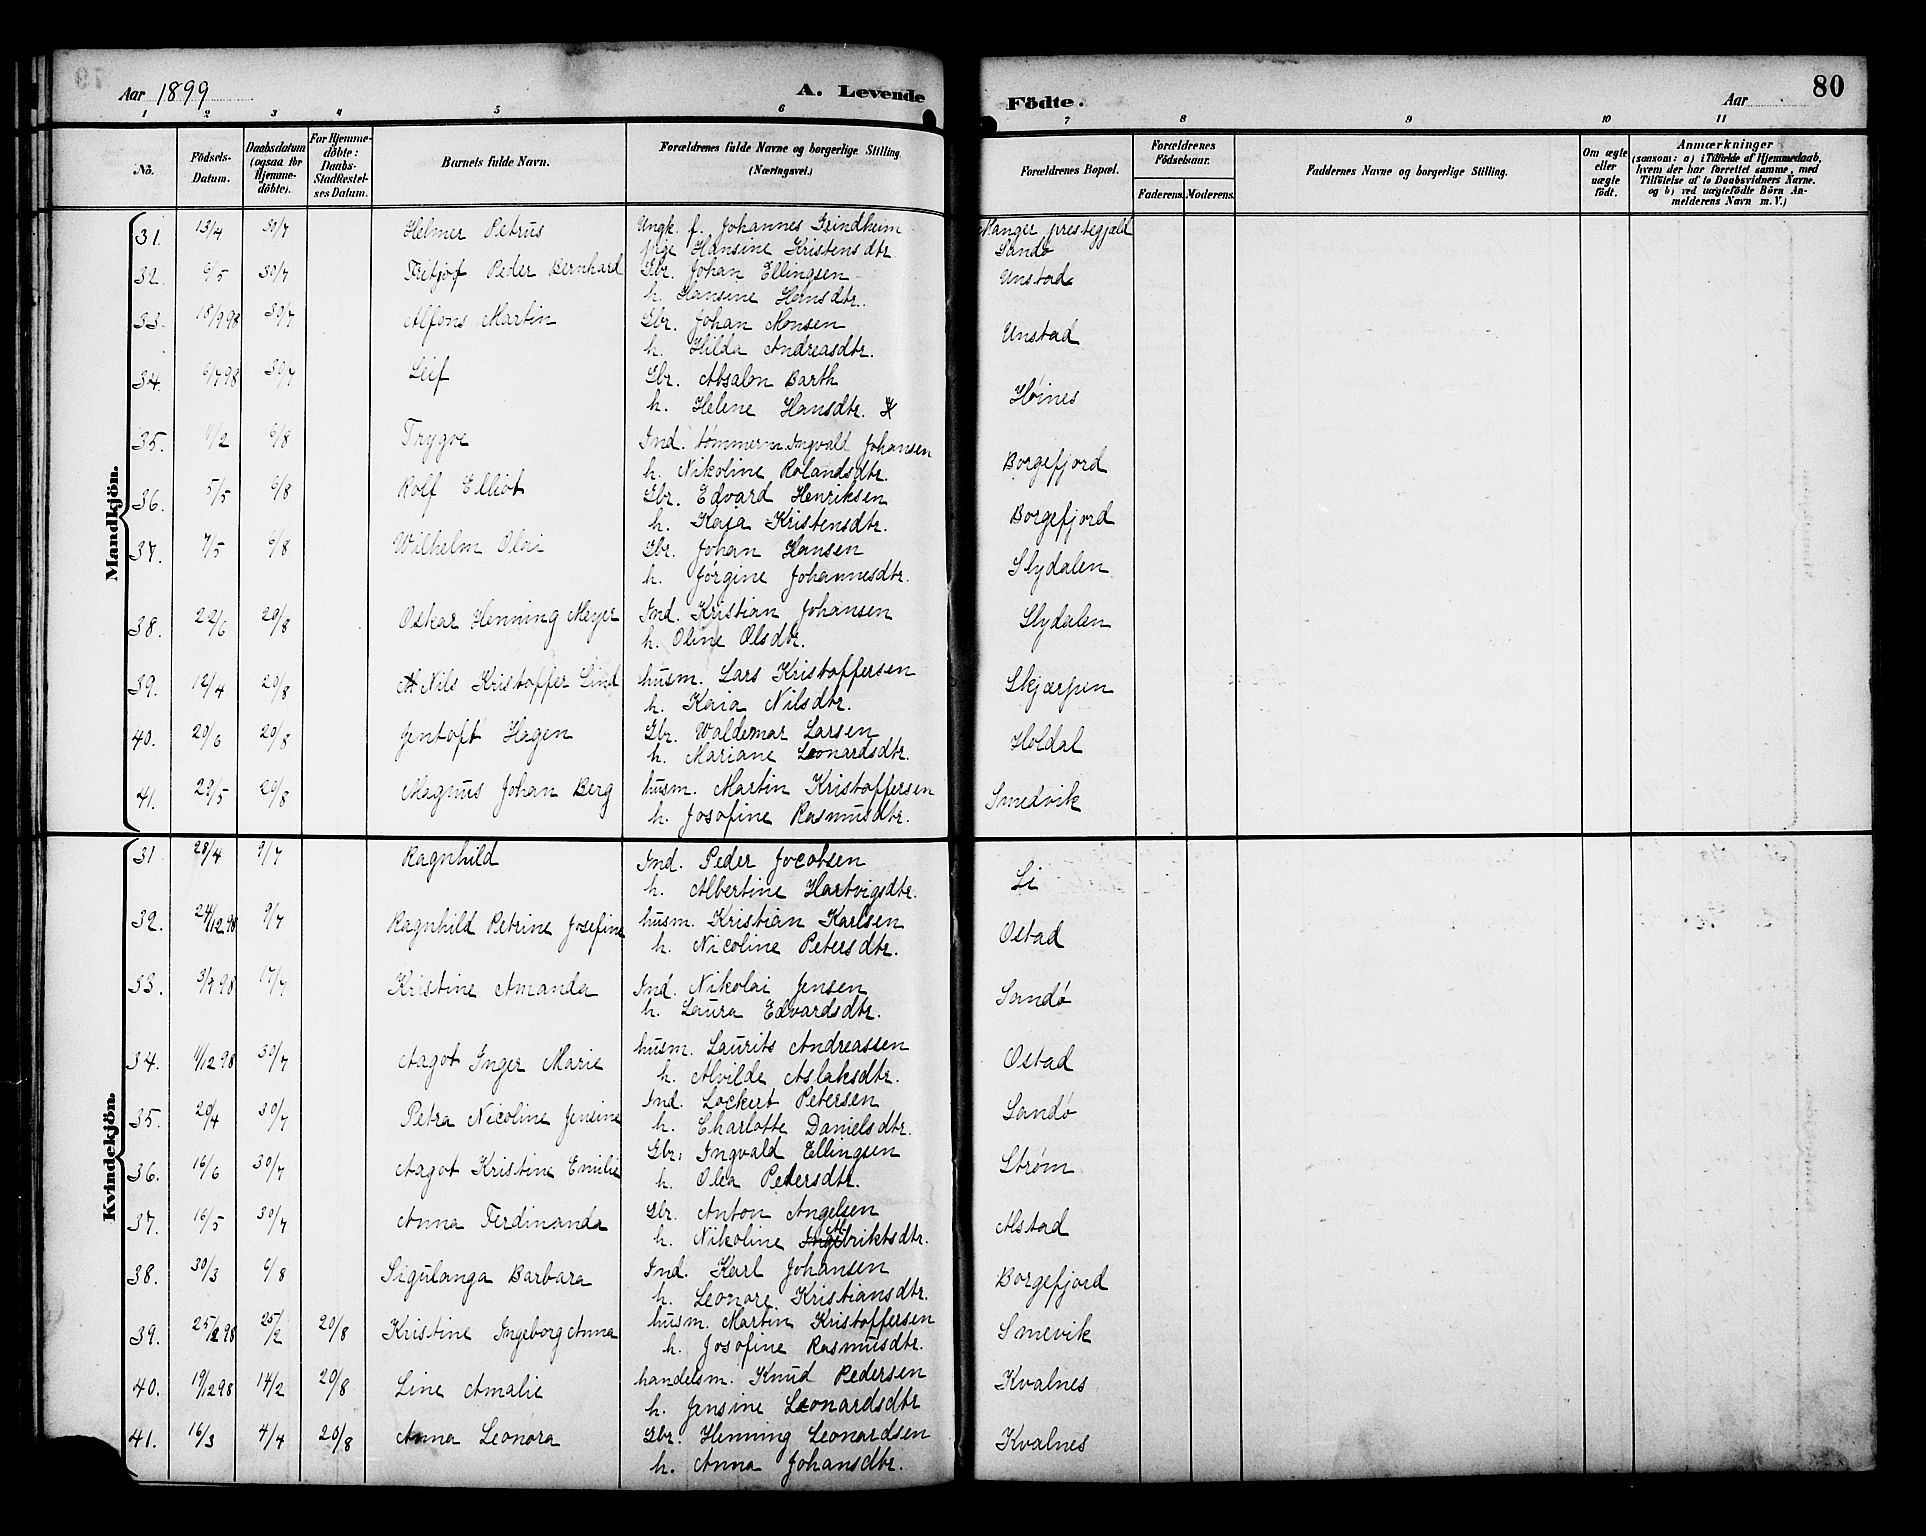 Aar 1899 A. Levende Födte. Aar 80
1 2 3 4 5 6 7 8 9 10 11
No. Födsels-Datum. Daabsdatum (ogsaa for Hjemme-döbte). For Hjemme-döbte: Daabs-Stadfæstel-ses Datum. Barnets fulde Navn. Forældrenes fulde Navne og borgerlige Stilling (Næringsvei.) Forældrenes Bopæl. Forældrenes Födselsaar. Faderens. Moderens. Faddernes Navne og borgerlige Stilling. Om ægte eller uægte födt. Anmærkninger (saasom: a) i Tilfælde af Hjemmedaab, hvem der har forrettet samme, med Tilföielse af to Daabsvidners Navne, og b) ved uægtefödte Börn An-melderens Navn m. V.)
Mandkjön.
31. 13/4 30/7 Helmer Petrus Ungk. f. Johannes Grindheim Manger prestegjæld
pige Hansine Kristensdtr Sandø
32. 6/5 30/7 Fritjof Peder Bernhard Gbr. Johan Ellingsen Unstad
h. Hansine Hansdtr.
33. 18/9 98 30/7 Alfons Martin Gbr. Johan Monsen Unstad
h. Hilda Andreasdtr.
34. 6/7 98 30/7 Leif Gbr. Absalon Barth Høines
h. Helene Hansdtr.
35. 4/2 6/8 Trygve Ind. tømmerm. Ingvald Johansen Borgefjord
h. Nikoline Rolandsdtr.
36. 5/5 6/8 Rolf Elliot Gbr. Edvard Henriksen Borgefjord
h. Kaja Kristensdtr.
37. 7/5 6/8 Wilhelm Olai Gbr. Johan Hansen Slydalen
h. Jørgine Johannesdtr.
38. 22/6 20/8 Oskar Henning Meyer Ind. Kristian Johansen Slydalen
h. Oline Olsdtr.
39. 12/4 20/8 Nils Kristoffer Lind husm. Lars Kristoffersen Skjærpen
h. Kaia Nilsdtr.
40. 20/6 20/8 Jentoft Hagen Gbr. Waldemar Larsen Holdal
h. Mariane Leonardsdtr.
41. 29/5 20/8 Magnus Johan Berg husm. Martin Kristoffersen Smedvik
h. Josofine Rasmusdtr.
Kvindekjön.
31 28/4 9/7 Ragnhild Ind. Peder Jocobsen Li
h. Albertine Hartvigsdtr.
32. 24/12 98 9/7 Ragnhild Petrine Josefine husm. Kristian Karlsen Ostad
h. Nicoline Petersdtr.
33. 3/9 98 17/7 Kristine Amanda Ind. Nikolai Jensen Sandø
h. Laura Edvardsdtr.
34. 4/12 98 30/7 Aagot Inger Marie husm. Laurits Andreassen Ostad
h. Alvilde Aslaksdtr.
35. 20/4 30/7 Petra Nicoline Jensine Ind. Lockert Petersen Sandø
h. Charlotte Danielsdtr.
36. 16/6 30/7 Aagot Kristine Emilie Gbr. Ingvald Ellingsen Strøm
h. Olea Pedersdtr.
37. 16/5 30/7 Anna Ferdinanda Gbr. Anton Angelsen Alstad
h. Nikoline Albriktsdtr.
38. 30/3 6/8 Sigulanga Barbara Ind. Karl Johansen Borgefjord
h. Leonore Kristiansdtr.
39. 25/12 98 25/2 20/8 Kristine Ingeborg Anna husm. Martin Kristoffersen Smevik
h. Josofine Rasmusdtr.
40. 19/12 98 14/2 20/8 Line Amalie handelsm. Knud Pedersen Kvalnes
h. Jensine Leonardsdtr
41. 16/3 4/4 20/8 Anna Leonora Gbr. Henning Leonardsen Kvalnes
h. Anna Johansdtr.